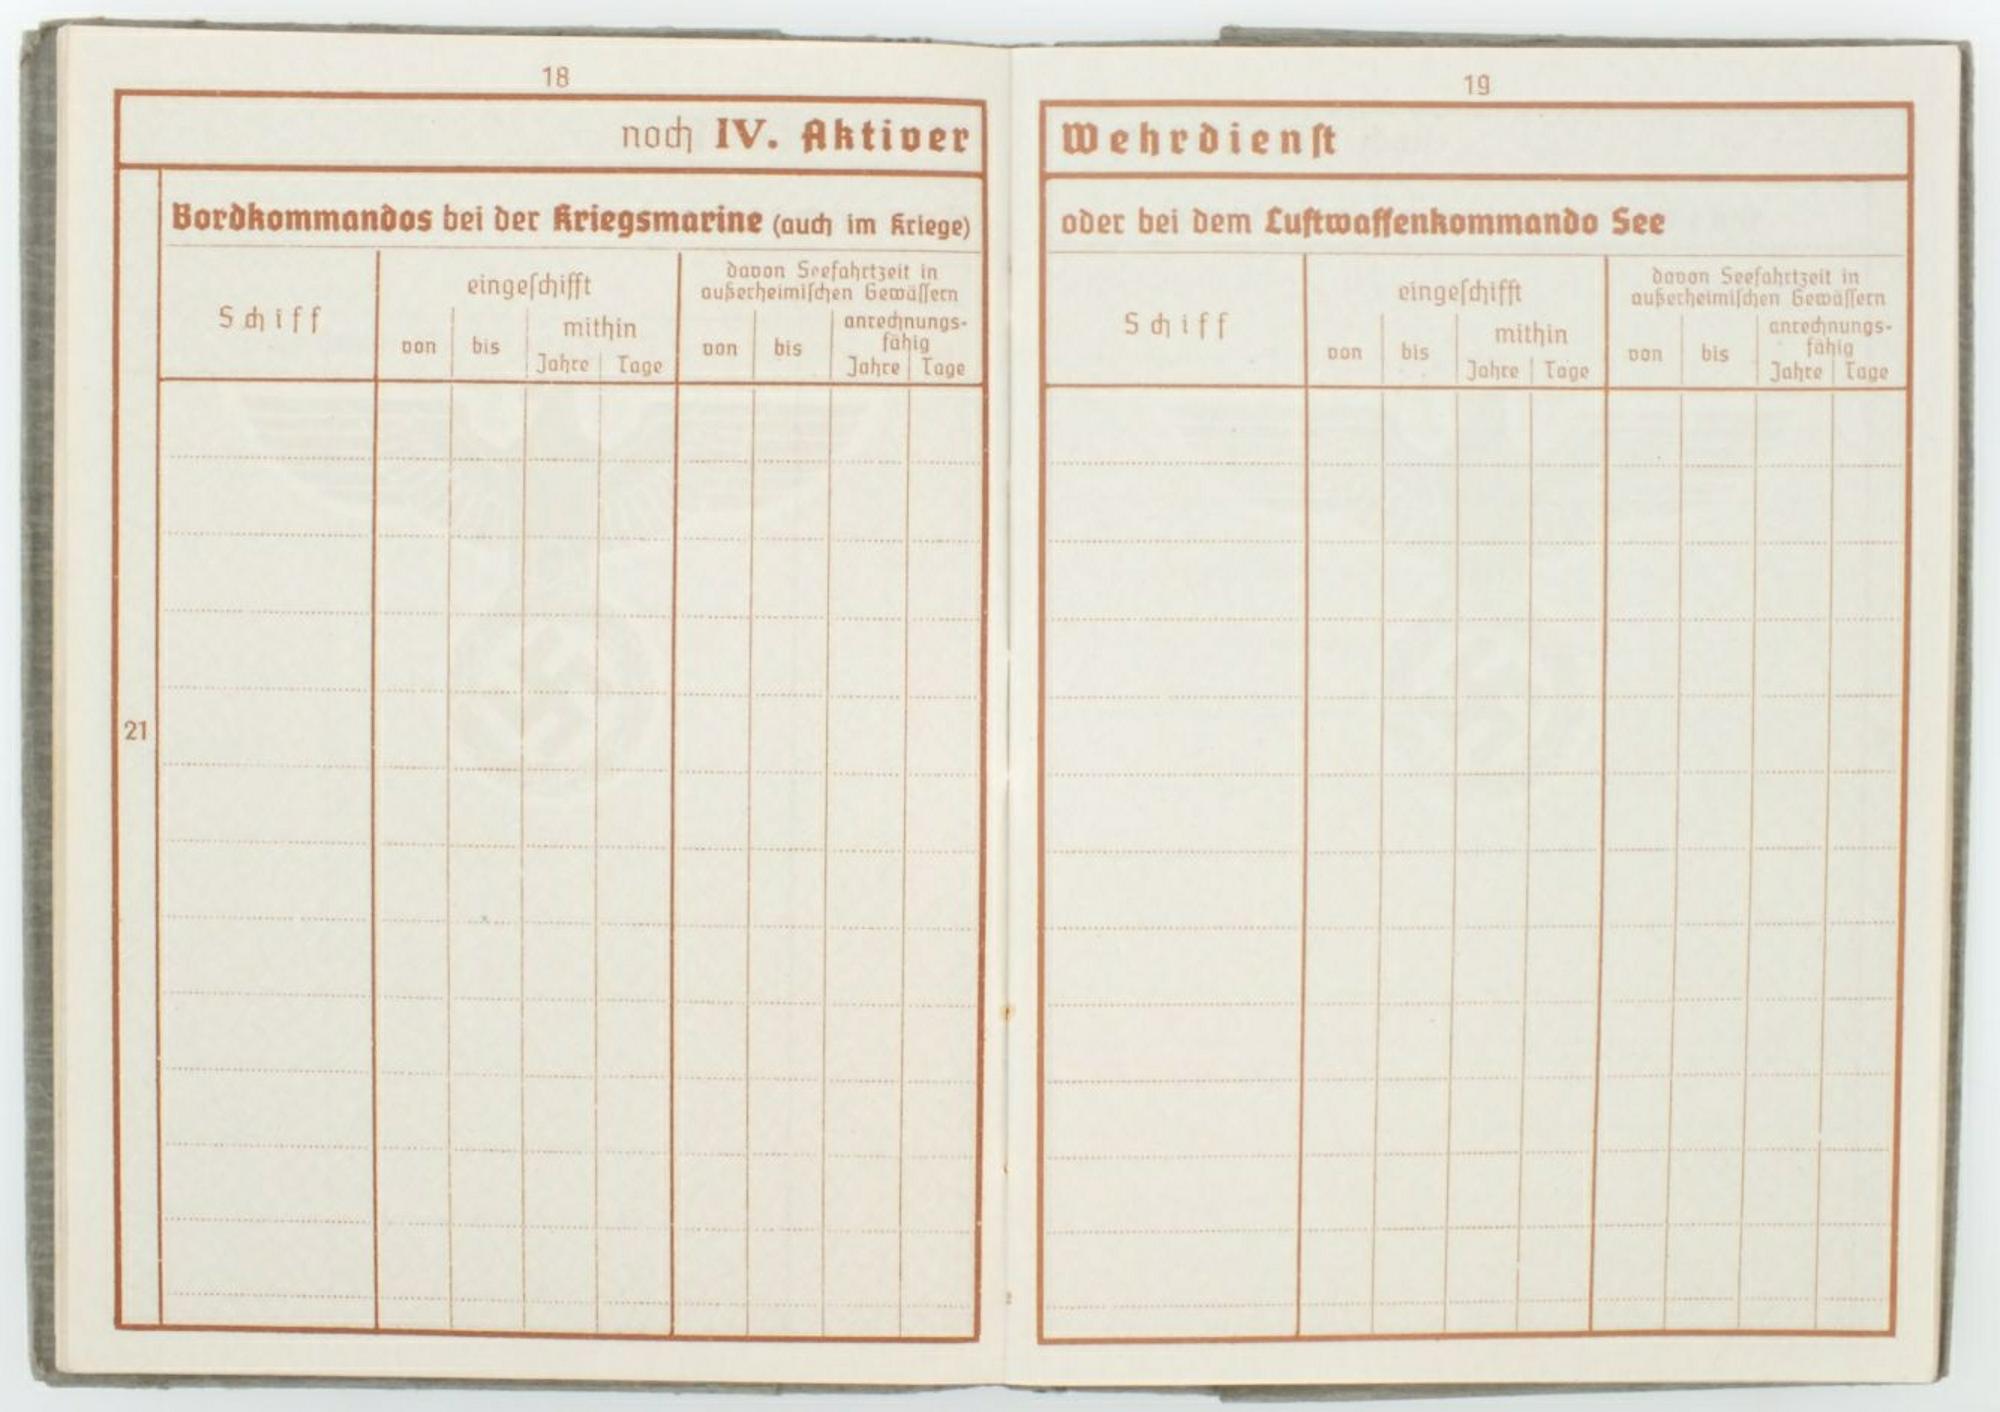 18
noch IV. Aktiver
Bordkommandos bei der Kriegsmarine (auch im Kriege)
Schiff
eingeschifft
von
bis
mithin
Jahre
Tage
davon Seefahrtzeit in
außerheimischen Gewässern
von
bis
anrechnungs-
fähig
Jahre
Tage
21
19
Wehrdienst
oder bei dem Luftwaffenkommando See
Schiff
eingeschifft
von
bis
mithin
Jahre
Tage
davon Seefahrtzeit in
außerheimischen Gewässern
von
bis
anrechnungs-
fähig
Jahre
Tage